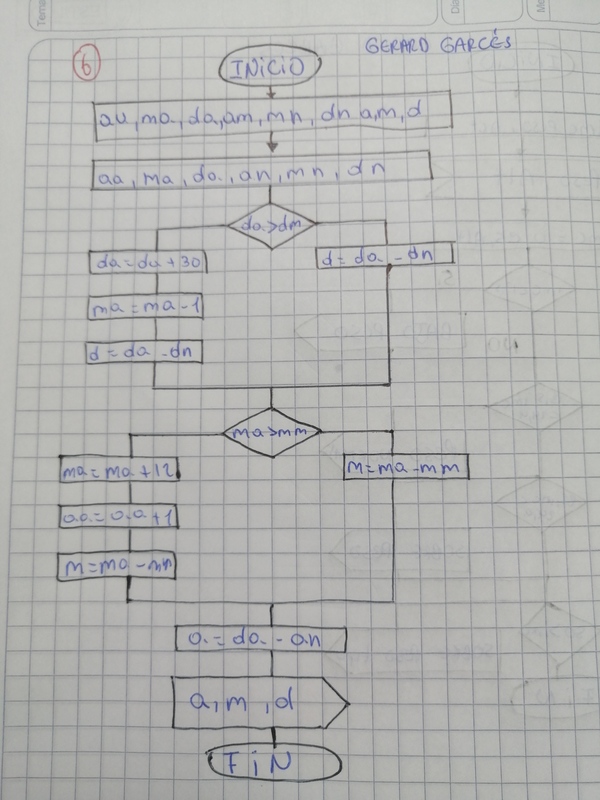 GERARD GARCÉS
6
INICIO
aa, ma, da, am, mn, dn a, m, d
aa, ma, da, an, mn, dn
da>dm
da=da+30
d=da-dn
ma=ma-1
d=da-dn
ma>mm
ma=ma+12
m=ma-mm
aa=aa+1
m=ma-mn
a=da-an
a, m, d
FIN